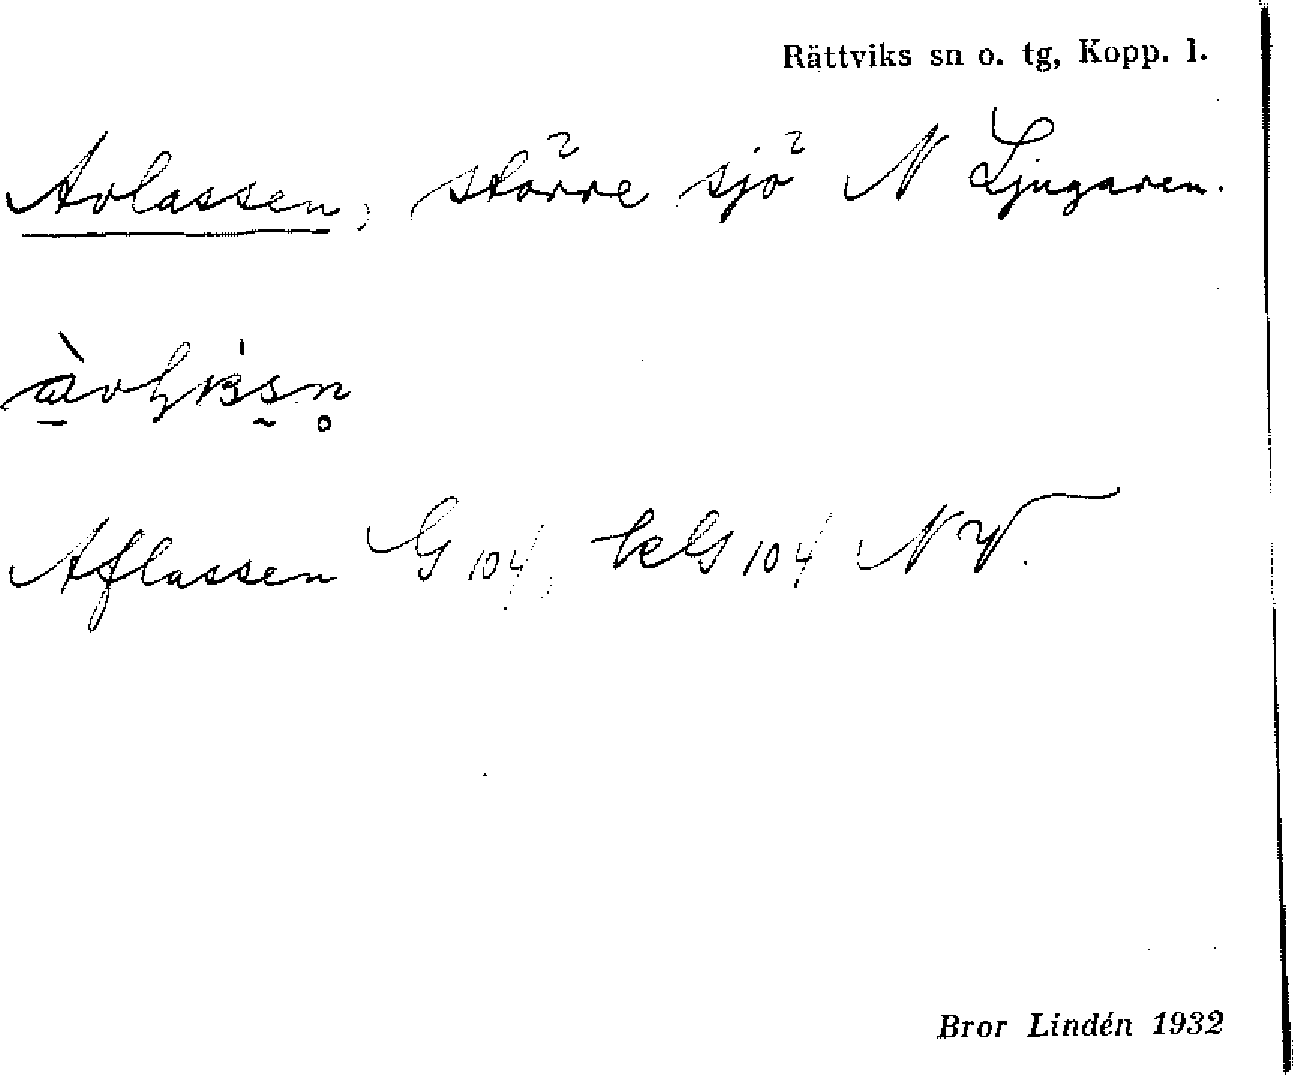 Rättviks sn o. tg, Kopp. l.
Avlassen, större sjö N Ljugaren.
Aflassen G 104, kG 104 NV.
Bror Lindén 1932